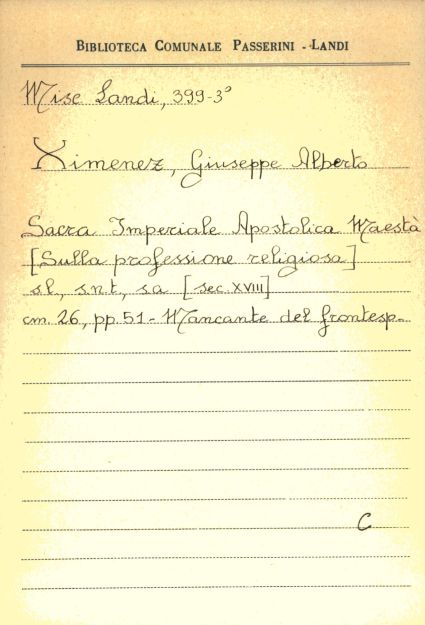 BIBLIOTECA COMUNALE PASSERINI - LANDI
Misc Landi, 399-3°
Ximenez, Giuseppe Alberto
Sacra Imperiale Apostolica Maestà
[Sulla professione religiosa]
s.l., s.n.t., s.a. [sec. XVIII]
cm. 26, pp. 51 - Mancante del frontesp.
C